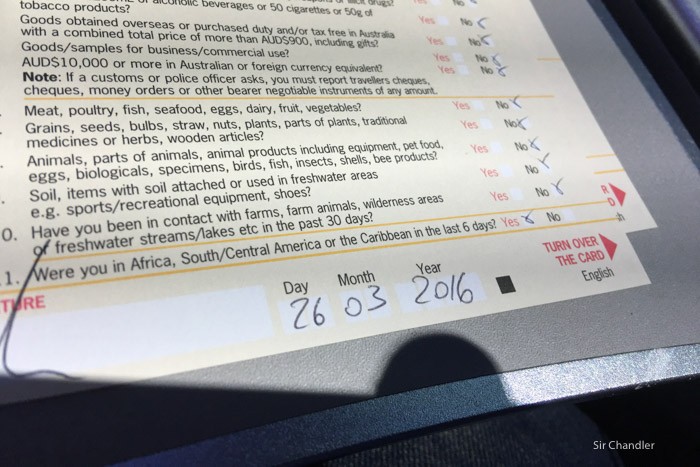 alcoholic beverages or 50 cigarettes or 50g of
tobacco products? Yes No
Goods obtained overseas or purchased duty and/or tax free in Australia
with a combined total price of more than AUD$900, including gifts? Yes No
Goods/samples for business/commercial use? Yes No
AUD$10,000 or more in Australian or foreign currency equivalent? Yes No
Note: If a customs or police officer asks, you must report travellers cheques,
cheques, money orders or other bearer negotiable instruments of any amount.
Meat, poultry, fish, seafood, eggs, dairy, fruit, vegetables? Yes No
Grains, seeds, bulbs, straw, nuts, plants, parts of plants, traditional
medicines or herbs, wooden articles? Yes No
Animals, parts of animals, animal products including equipment, pet food,
eggs, biologicals, specimens, birds, fish, insects, shells, bee products? Yes No
Soil, items with soil attached or used in freshwater areas
e.g. sports/recreational equipment, shoes? Yes No
0. Have you been in contact with farms, farm animals, wilderness areas
or freshwater streams/lakes etc in the past 30 days? Yes No
1. Were you in Africa, South/Central America or the Caribbean in the last 6 days? Yes No
TURE
Day Month Year
26 03 2016
TURN OVER
THE CARD
English
Sir Chandler